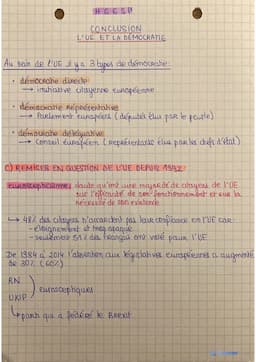 HGGSP
CONCLUSION
L'UE ET LA DÉMOCRATIE
Au sein de l'UE il y a 3 types de démocratie:
• démocratie directe
→ initiative citoyenne européenne
• démocratie représentative
→ Parlement européen (députés élus par le peuple)
• démocratie délégative
→ Conseil européen (représentants élus par les chefs d'état)
C) REMISES EN QUESTION DE L'UE DEPUIS 1992
euroscepticisme: doute qu'ont une majorité de citoyens de l'UE
sur l'efficacité de son fonctionnement et sur la
nécessité de son existence
↳ 48% des citoyens n'accordent pas leur confiance en l'UE car:
- éloignement et trop opaque
- seulement 51% des français ont voté pour l'UE
De 1984 à 2014 l'abstention aux législatives européennes a augmenté
de 30% (60%)
RN
UKIP
) eurosceptiques
↳ parti qui a fédéré le Brexit